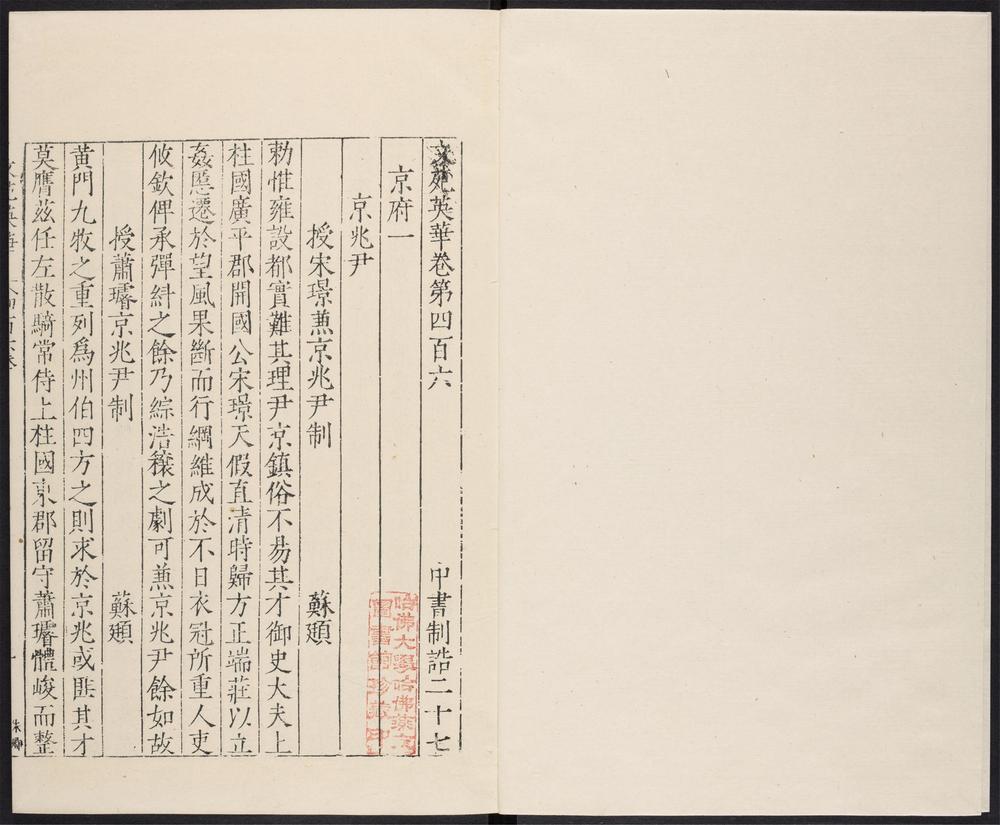 文苑英華卷第四百六 中書制誥二十七
京府一
京兆尹
授宋璟兼京兆尹制 蘇頲
勑惟雍設都實難其理尹京鎮俗不易其才御史大夫上
柱國廣平郡開國公宋璟天假直清時歸方正端莊以立
姦慝遷於望風果斷而行綱維成於不日衣冠所重人吏
攸欽俾承彈糾之餘乃綜浩穰之劇可兼京兆尹餘如故
授蕭璿京兆尹制 蘇頲
黃門九牧之重列爲州伯四方之則求於京兆或匪其才
莫膺茲任左散騎常侍上柱國東郡留守蕭璿體峻而整
哈佛大學哈佛燕京
圖書館珍藏印